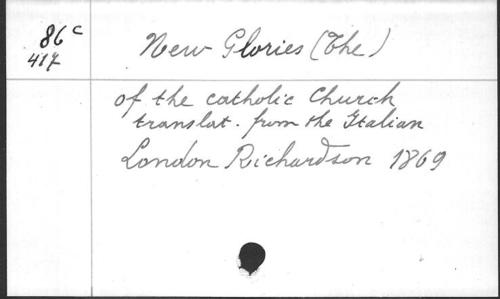 86c
417
New Glories (The)
of the catholic Church
translat. from the Italian
London Richardson 1869